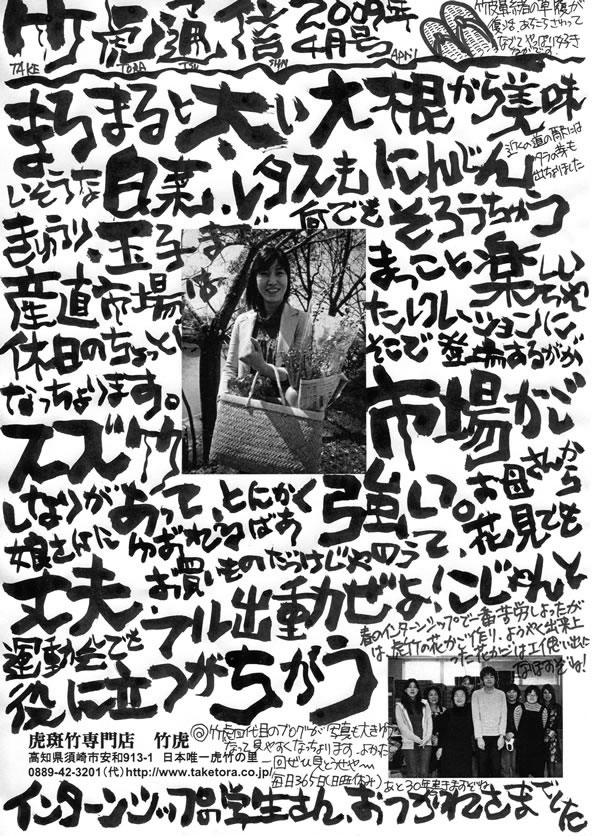 竹虎通信 2009年4月号 April
TAKE TORA TSU SHIN
まるまると太い大根から美味
しそうな白菜、レタスも にんじん
何でも そろうちゅう
きゅうり、玉子まで
まっこと楽しい
産直市場は
たレクレーションに
休日のちょっと
そこで登場するがが
なっちょります。
市場かご
スズ竹
しなりがあって、とにかく強い。
お母さんから
娘さんに
花見でも
お買いものだっけじゃのうて、
丈夫 フル出動ぜよ！こじゃんと
運動会でも
役に立つがちがう
春のインターンシップで一番苦労しよったが
は、虎竹の花かご作り、ようやく出来上
った花かごは
虎斑竹専門店 竹虎
高知県須崎市安和913-1 日本唯一虎竹の里
0889-42-3201（代）http://www.taketora.co.jp/
@竹虎四代目のブログが写真も大きゅう
なって見やすくなっちょります、よかったら
一回ぜひ見とうせや～
毎日365日(日正休み)
あと30年書きますぞね
インターンシップの学生さん、おつかれさまでした